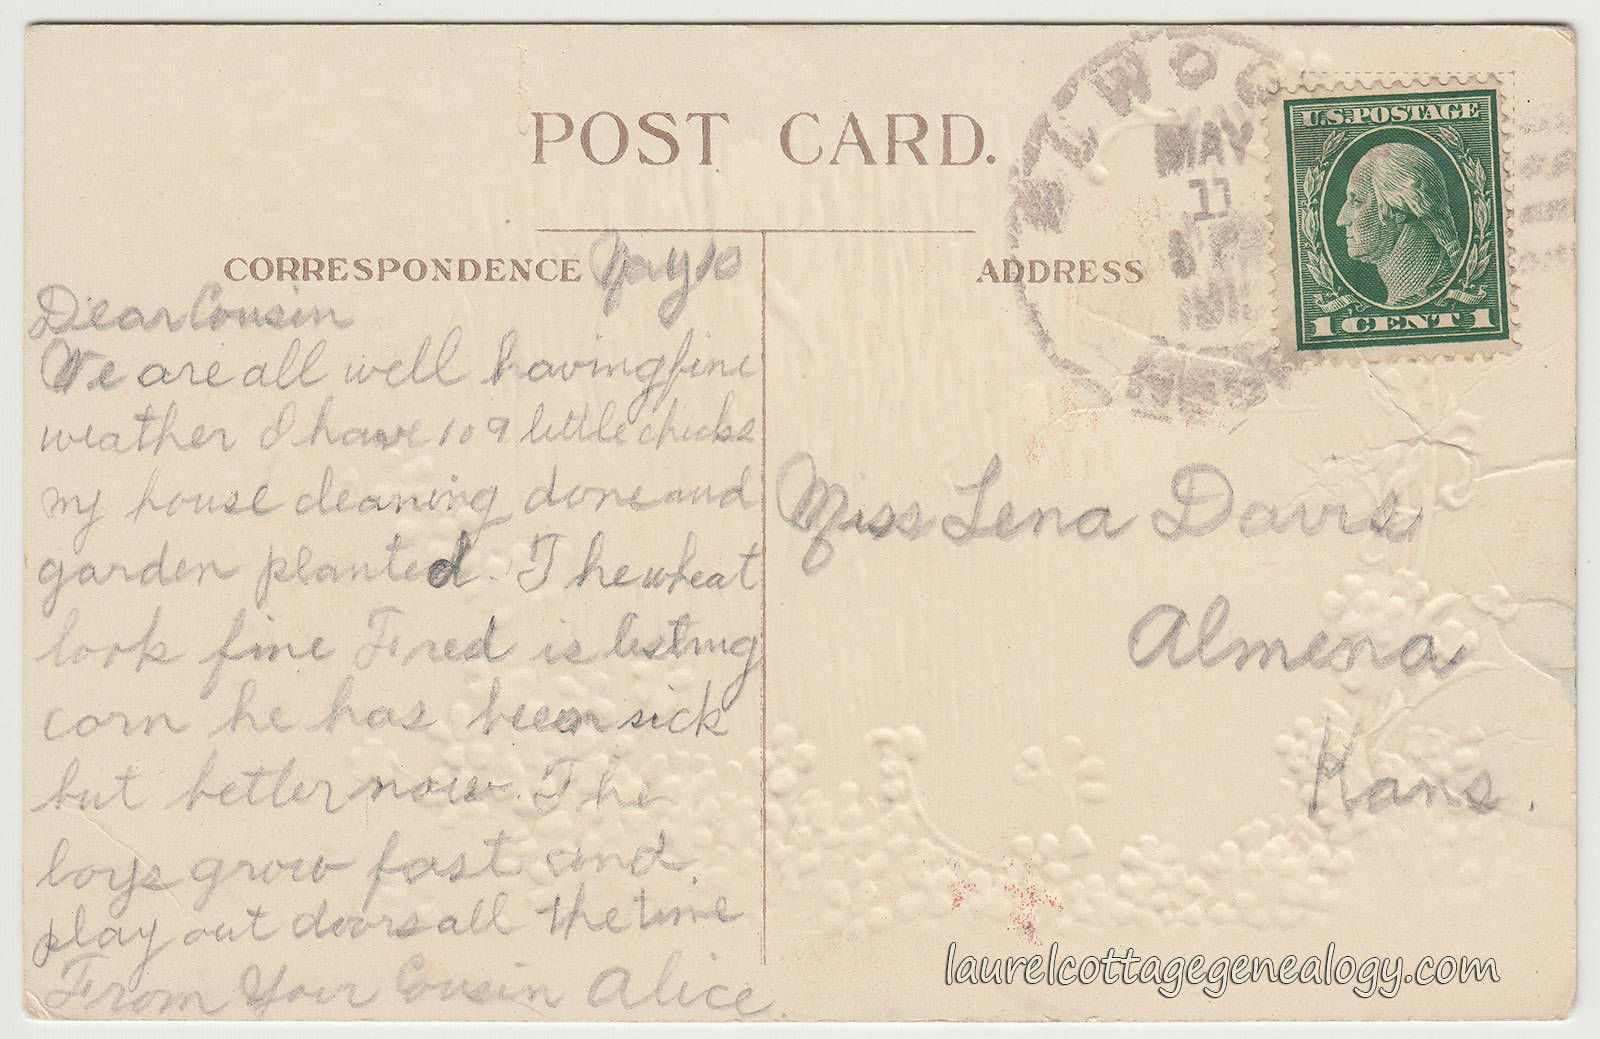 POST CARD.
CORRESPONDENCE
May 10
ADDRESS
MAY
11
U.S. POSTAGE
1 CENT 1
Dear Cousin
We are all well having fine
weather I have 109 little chicks
my house cleaning done and
garden planted. The wheat
look fine Fred is listing
corn he has been sick
but better now. The
boys grow fast and
play out doors all the time
From Your Cousin Alice.
Miss Lena Davis
Almena
Kans.
laurelcottagegenealogy.com